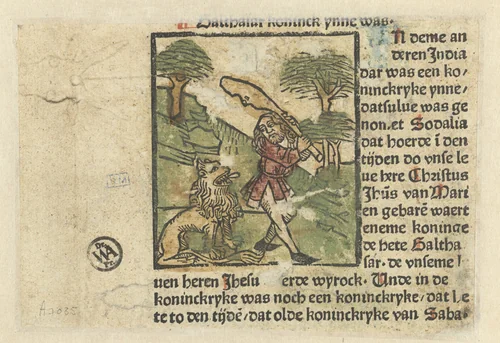 Balthasar koninck ynne was.
N deme an
deren India
dar was een ko-
ninckryke ynne,
datsulue was ge
nomet Sodalia
dat hoerde i den
tijden do vnse le
ue here Christus
Jhūs van Mari
en gebarē waert
eneme koninge
de hete Baltha
sar. de vnseme l
uen heren Jhesu erde wyrock. Unde in de
koninckryke was noch een koninckryke, dat le
te to den tijdē, dat olde koninckryke van Saba
A 1035